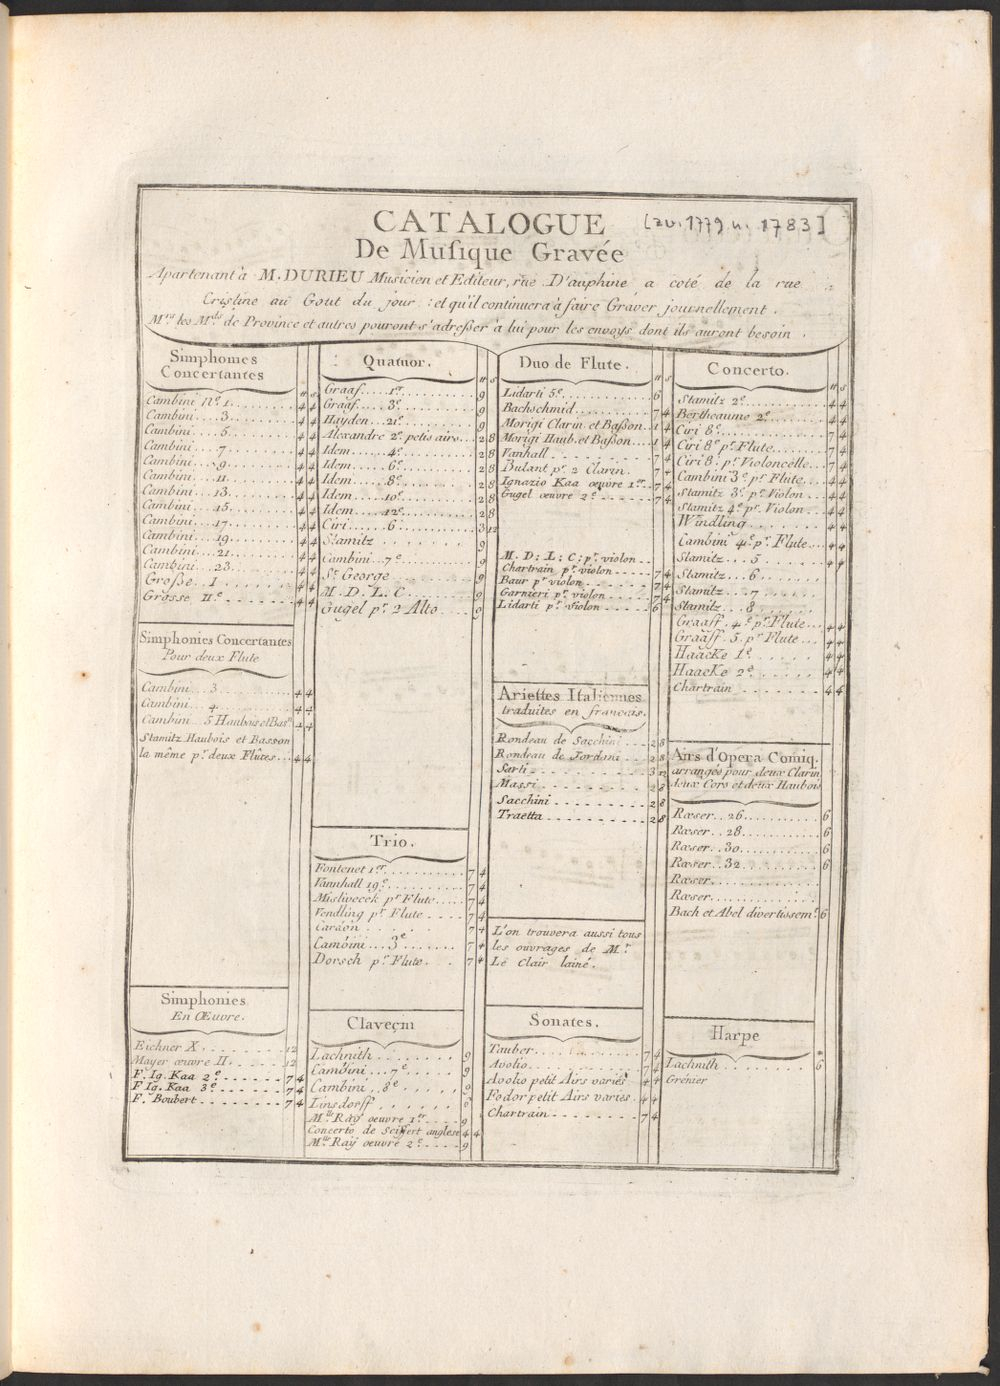 CATALOGUE [zw. 1779 u. 1783]
De Musique Gravée
Apartenant à M. DURIEU Musicien et Editeur, rue D'auphine a coté de la rue
Cristine au Gout du jour : et qu'il continuera à faire Graver journellement.
M.rs les M.ds de Province et autres pouront s'adresser à lui pour les envoys dont ils auront besoin.
Simphonies
Concertantes
₶ s
Cambini N.º 1. 4 4
Cambini....3. 4 4
Cambini....5. 4 4
Cambini....7. 4 4
Cambini....9. 4 4
Cambini....11. 4 4
Cambini....13. 4 4
Cambini....15. 4 4
Cambini....17. 4 4
Cambini....19. 4 4
Cambini....21. 4 4
Cambini....23. 4 4
Grosse..1. 4 4
Grosse II.e 4 4
Simphonies Concertantes
Pour deux Flute
Cambini....3. 4 4
Cambini....4. 4 4
Cambini...5 Haubois et Bas.n 4 4
Stamitz Haubois et Basson
la même p.r deux Flûtes... 4 4
Simphonies
En Œuvre.
Eichner X. 12
Mayer œuvre II. 12
F. Ig. Kaa 2.e 7 4
F. Ig. Kaa 3.e 7 4
F. Boubert. 7 4
Quatuor.
₶ s
Graaf....1.er 9
Graaf....3.e 9
Hayden...21.e 9
Alexandre 2.e petis airs... 2 8
Idem.....4.e 2 8
Idem.....6.e 2 8
Idem.....8.e 2 8
Idem.....10.e 2 8
Idem.....12.e 2 8
Ciri.....6 3 12
Stamitz 9
Cambini...7.e 9
S.t George 9
M. D. L. C. 9
Gugel p.r 2 Alto 9
Trio.
Fontenet 1.er 7 4
Vannhall 19.e 7 4
Mislivecek p.r Flute 7 4
Vendling p.r Flute 7 4
Cardon 7 4
Cambini...3.e 7 4
Dorsch p.r Flute. 7 4
Claveçin
Lachnith 9
Cambini...7.e 9
Cambini..8.e 9
Linsdorff 6
M.lle Raÿ oeuvre 1.er 9
Concerto de Seiffert anglese 4 4
M.lle Raÿ oeuvre 2.e 9
Duo de Flute.
₶ s
Lidarti 5.e 6
Bachschmid 7 4
Morigi Clarin. et Basson 1 4
Morigi Haub. et Basson 1 4
Vanhall 7 4
Bulant p.r 2 Clarin. 7 4
Ignazio Kaa œuvre 1.er 7 4
Gugel œuvre 2.e 7 4
M. D; L; C; p.r violon
Chartrain p.r violon 7 4
Baur p.r violon 7 4
Garnieri p.r violon 7 4
Lidarti p.r violon 6
Ariettes Italiennes
traduites en francais.
Rondeau de Sacchini 2 8
Rondeau de Jordani 2 8
Sarti 3 12
Massi 2 8
Sacchini 2 8
Traetta 2 8
L'on trouvera aussi tous
les ouvrages de M.r
Le Clair lainé.
Sonates.
Tauber 7 4
Avolio 7 4
Avolio petit Airs variés 4 4
Fodor petit Airs variés. 4 4
Chartrain 7 4
Concerto.
₶ s
Stamitz 2.e 4 4
Bertheaume 2.e 4 4
Ciri 8.e 7 4
Ciri 8.e p.r Flute 7 4
Ciri 8. p.r Violoncelle 7 4
Cambini 3.e p.r Flute 4 4
Stamitz 3.e p.r Violon 4 4
Stamitz 4.e p.r Violon 4 4
Windling 4 4
Cambini 4.e p.r Flute 4 4
Stamitz...5
Stamitz...6
Stamitz...7
Stamitz...8
Graaff.4.e p.r Flute 4 4
Graaff.5. p.r Flute 4 4
Haacke 1.e 4 4
Haacke 2.e 4 4
Chartrain 4 4
Airs d'Opera Comiq.
arrangés pour deux Clarin.
deux Cors et deux Haubois
Rœser..26 6
Rœser..28 6
Rœser..30 6
Rœser..32 6
Rœser
Rœser
Bach et Abel divertissem.t 6
Harpe
Lachnith 6
Grenier